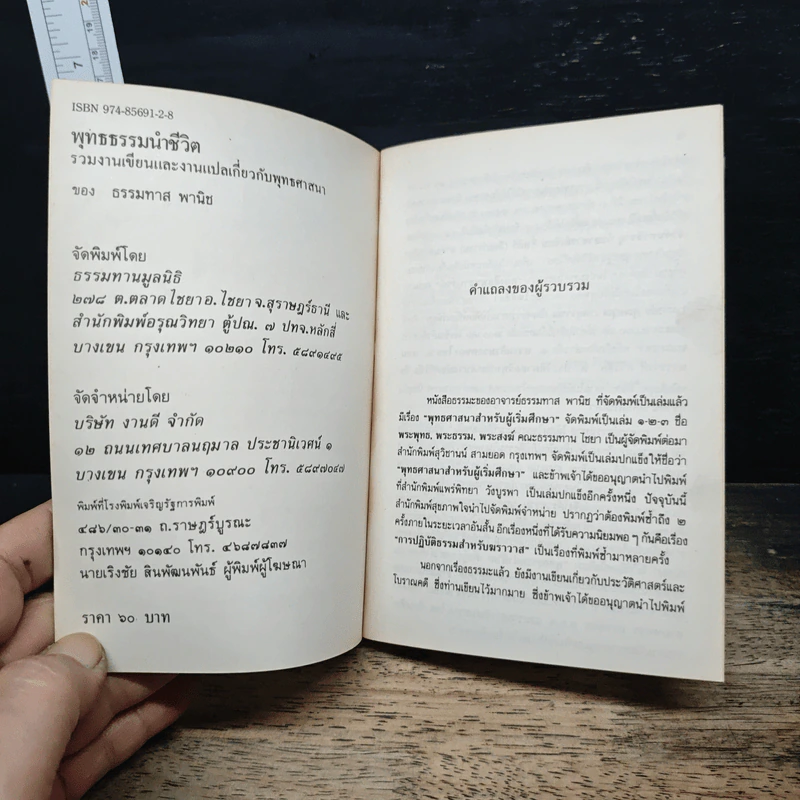 7
ISBN 974-85691-2-8
พุทธธรรมนำชีวิต
รวมงานเขียนและงานแปลเกี่ยวกับพุทธศาสนา
ของ ธรรมทาส พานิช
จัดพิมพ์โดย
ธรรมทานมูลนิธิ
๒๗๘ ต.ตลาดไชยา อ.ไชยา จ.สุราษฎร์ธานี และ
สำนักพิมพ์อรุณวิทยา ตู้ปณ. ๗ ปทจ.หลักสี่
บางเขน กรุงเทพฯ ๑๐๒๑๐ โทร. ๕๘๙๑๔๙๕
จัดจำหน่ายโดย
บริษัท งานดี จำกัด
๑๒ ถนนเทศบาลนฤมาล ประชานิเวศน์ ๑
บางเขน กรุงเทพฯ ๑๐๙๐๐ โทร. ๕๘๙๗๐๔๗
พิมพ์ที่โรงพิมพ์เจริญรัฐการพิมพ์
๔๘๖/๓๐-๓๑ ถ.ราษฎร์บูรณะ
กรุงเทพฯ ๑๐๑๔๐ โทร. ๔๖๘๗๘๓๗
นายเริงชัย สินพัฒนพันธ์ ผู้พิมพ์ผู้โฆษณา
ราคา ๖๐ บาท
คำแถลงของผู้รวบรวม
หนังสือธรรมะของอาจารย์ธรรมทาส พานิช ที่จัดพิมพ์เป็นเล่มแล้ว
มีเรื่อง "พุทธศาสนาสำหรับผู้เริ่มศึกษา" จัดพิมพ์เป็นเล่ม ๑-๒-๓ ชื่อ
พระพุทธ, พระธรรม, พระสงฆ์ คณะธรรมทาน ไชยา เป็นผู้จัดพิมพ์ต่อมา
สำนักพิมพ์สุวิชานน์ สามยอด กรุงเทพฯ จัดพิมพ์เป็นเล่มปกแข็งให้ชื่อว่า
"พุทธศาสนาสำหรับผู้เริ่มศึกษา" และข้าพเจ้าได้ขออนุญาตนำไปพิมพ์
ที่สำนักพิมพ์แพร่พิทยา วังบูรพา เป็นเล่มปกแข็งอีกครั้งหนึ่ง ปัจจุบันนี้
สำนักพิมพ์สุขภาพใจนำไปจัดพิมพ์จำหน่าย ปรากฏว่าต้องพิมพ์ซ้ำถึง ๒
ครั้งภายในระยะเวลาอันสั้น อีกเรื่องหนึ่งที่ได้รับความนิยมพอ ๆ กันคือเรื่อง
"การปฏิบัติธรรมสำหรับฆราวาส" เป็นเรื่องที่พิมพ์ซ้ำมาหลายครั้ง
นอกจากเรื่องธรรมะแล้ว ยังมีงานเขียนเกี่ยวกับประวัติศาสตร์และ
โบราณคดี ซึ่งท่านเขียนไว้มากมาย ซึ่งข้าพเจ้าได้ขออนุญาตนำไปพิมพ์